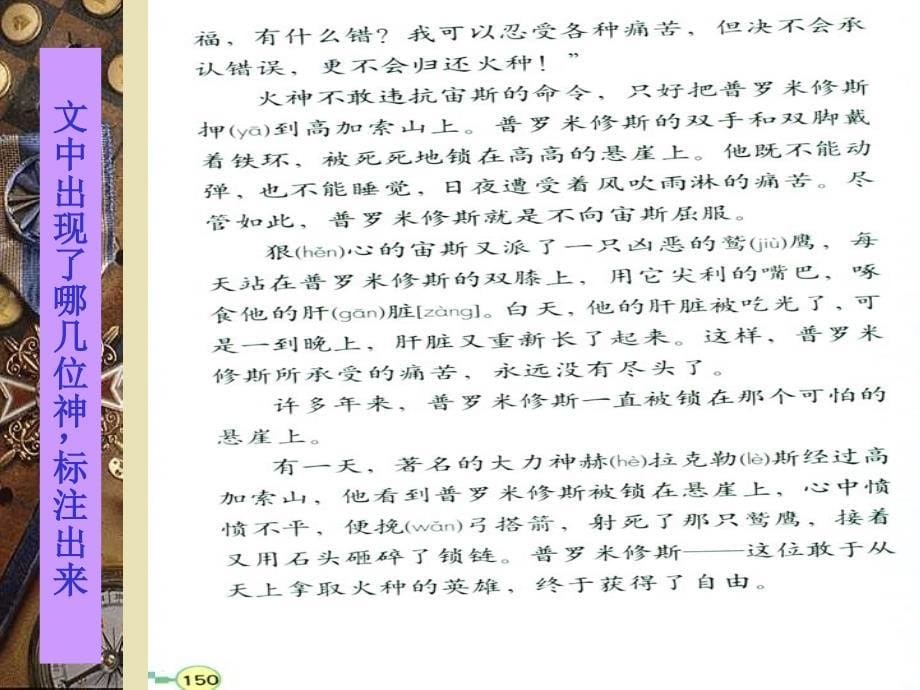 文中出现了哪几位神，标注出来
福，有什么错？我可以忍受各种痛苦，但决不会承
认错误，更不会归还火种！”
火神不敢违抗宙斯的命令，只好把普罗米修斯
押(yā)到高加索山上。普罗米修斯的双手和双脚戴
着铁环，被死死地锁在高高的悬崖上。他既不能动
弹，也不能睡觉，日夜遭受着风吹雨淋的痛苦。尽
管如此，普罗米修斯就是不向宙斯屈服。
狠(hěn)心的宙斯又派了一只凶恶的鹫(jiù)鹰，每
天站在普罗米修斯的双膝上，用它尖利的嘴巴，啄
食他的肝(gān)脏[zàng]。白天，他的肝脏被吃光了，可
是一到晚上，肝脏又重新长了起来。这样，普罗米
修斯所承受的痛苦，永远没有尽头了。
许多年来，普罗米修斯一直被锁在那个可怕的
悬崖上。
有一天，著名的大力神赫(hè)拉克勒(lè)斯经过高
加索山，他看到普罗米修斯被锁在悬崖上，心中愤
愤不平，便挽(wǎn)弓搭箭，射死了那只鹫鹰，接着
又用石头砸碎了锁链。普罗米修斯——这位敢于从
天上拿取火种的英雄，终于获得了自由。
150